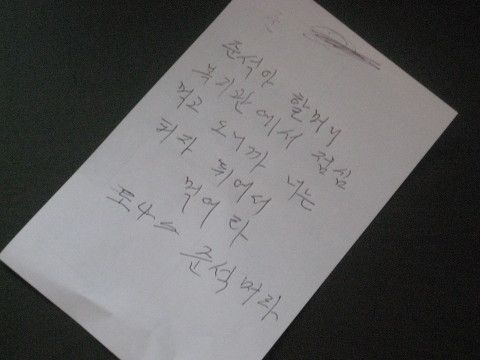 준석아 할머니
복지관에서 점심
먹고 오니까 너는
피자 튀어서
먹어라
도나스 준석 머라